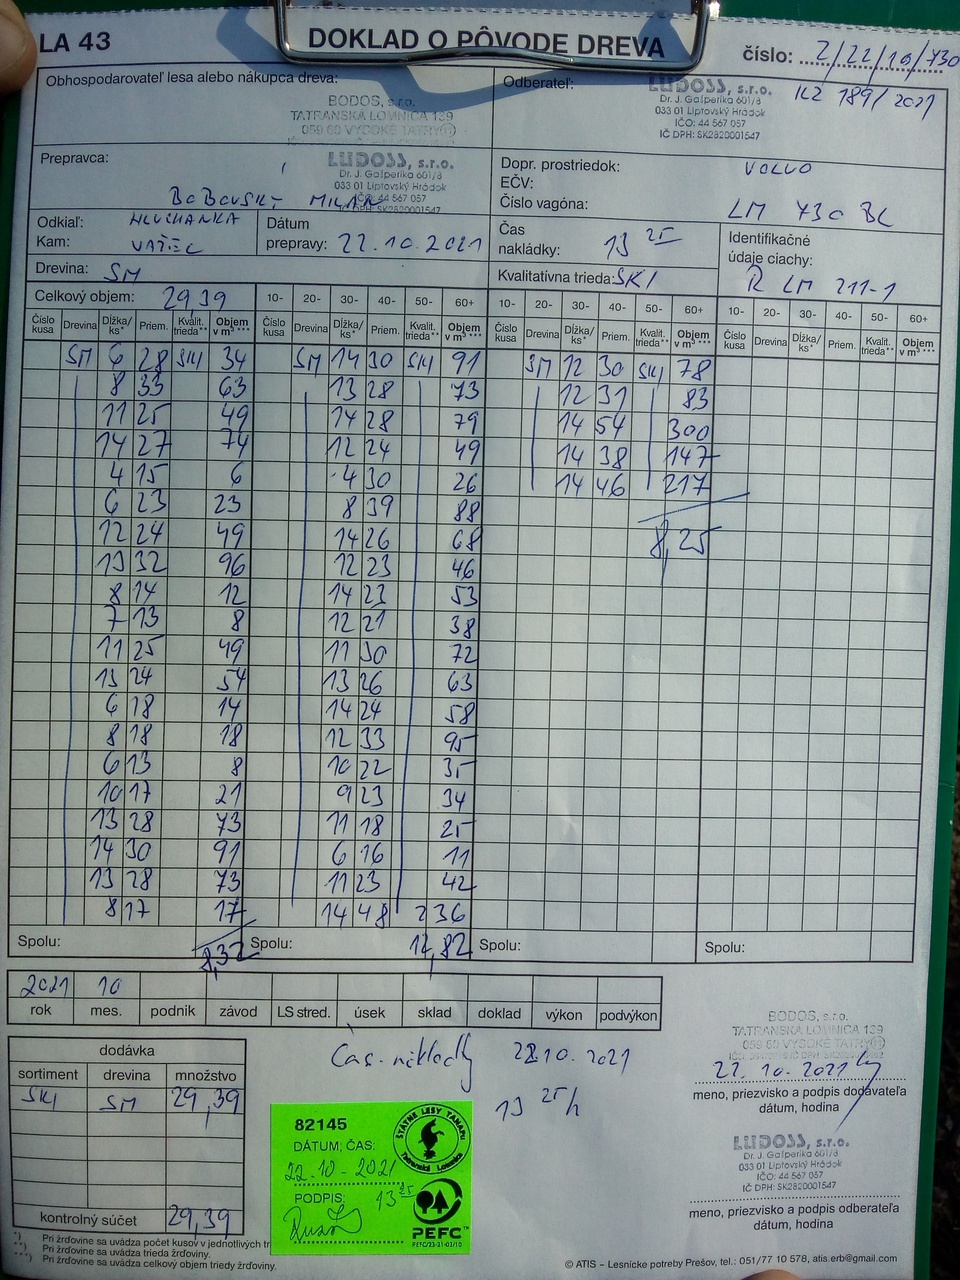 LA 43
DOKLAD O PÔVODE DREVA
číslo: 2/22/10/730
Obhospodarovateľ lesa alebo nákupca dreva:
BODOS, s.r.o.
TATRANSKÁ LOMNICA 139
059 60 VYSOKÉ TATRY
Odberateľ:
LUDOSS, s.r.o.
Dr. J. Gašperíka 601/8
033 01 Liptovský Hrádok
IČO: 44 567 057
IČ DPH: SK2820001547
KZ 189/2021
Prepravca:
LUDOSS, s.r.o.
Dr. J. Gašperíka 601/8
033 01 Liptovský Hrádok
IČO: 44 567 057
IČ DPH: SK2820001547
BOBOVSKÝ MILAN
Dopr. prostriedok: VOLVO
EČV:
Číslo vagóna: LM 730 BL
Odkiaľ: HLUCHANKA
Kam: VAŽEC
Dátum
prepravy: 22.10.2021
Čas
nakládky: 13 25
Identifikačné
údaje ciachy:
R LM 211-1
Drevina: SM
Kvalitatívna trieda: SKI
Celkový objem: 29,39
10- 20- 30- 40- 50- 60+ 10- 20- 30- 40- 50- 60+ 10- 20- 30- 40- 50- 60+
Číslo kusa Drevina Dĺžka/ ks* Priem. Kvalit. trieda** Objem v m³ *** Číslo kusa Drevina Dĺžka/ ks* Priem. Kvalit. trieda** Objem v m³ *** Číslo kusa Drevina Dĺžka/ ks* Priem. Kvalit. trieda** Objem v m³ *** Číslo kusa Drevina Dĺžka/ ks* Priem. Kvalit. trieda** Objem v m³ ***
SM 6 28 SKI 34 SM 14 30 SKI 91 SM 12 30 SKI 78
8 33 63 13 28 73 12 31 83
11 25 49 14 28 79 14 54 300
14 27 74 12 24 49 14 38 147
4 15 6 4 30 26 14 46 217
6 23 23 8 39 88
12 24 49 14 26 68 8,25
13 32 96 12 23 46
8 14 12 14 23 53
7 13 8 12 21 38
11 25 49 11 30 72
13 24 54 13 26 63
6 18 14 14 24 58
8 18 18 12 33 95
6 13 8 10 22 35
10 17 21 9 23 34
13 28 73 11 18 25
14 30 91 6 16 11
13 28 73 11 23 42
8 17 17 14 48 236
Spolu: 8,32 Spolu: 12,82 Spolu: Spolu:
2021 10
rok mes. podnik závod LS stred. úsek sklad doklad výkon podvýkon
dodávka
sortiment drevina množstvo
SKI SM 29,39
kontrolný súčet 29,39
Čas. nákladky 22.10.2021
13 25 h
82145
DÁTUM, ČAS:
22.10-2021
13 25
PODPIS:
ŠTÁTNE LESY TANAPU
Tatranská Lomnica
PEFC™
PEFC/23-21-03/10
BODOS, s.r.o.
TATRANSKÁ LOMNICA 139
059 60 VYSOKÉ TATRY
22.10.2021
meno, priezvisko a podpis dodávateľa
dátum, hodina
LUDOSS, s.r.o.
Dr. J. Gašperíka 601/8
033 01 Liptovský Hrádok
IČO: 44 567 057
IČ DPH: SK2820001547
meno, priezvisko a podpis odberateľa
dátum, hodina
*) Pri žrďovine sa uvádza počet kusov v jednotlivých
**) Pri žrďovine sa uvádza trieda žrďoviny.
***) Pri žrďovine sa uvádza celkový objem triedy žrďoviny.
© ATIS – Lesnícke potreby Prešov, tel.: 051/77 10 578, atis.erb@gmail.com